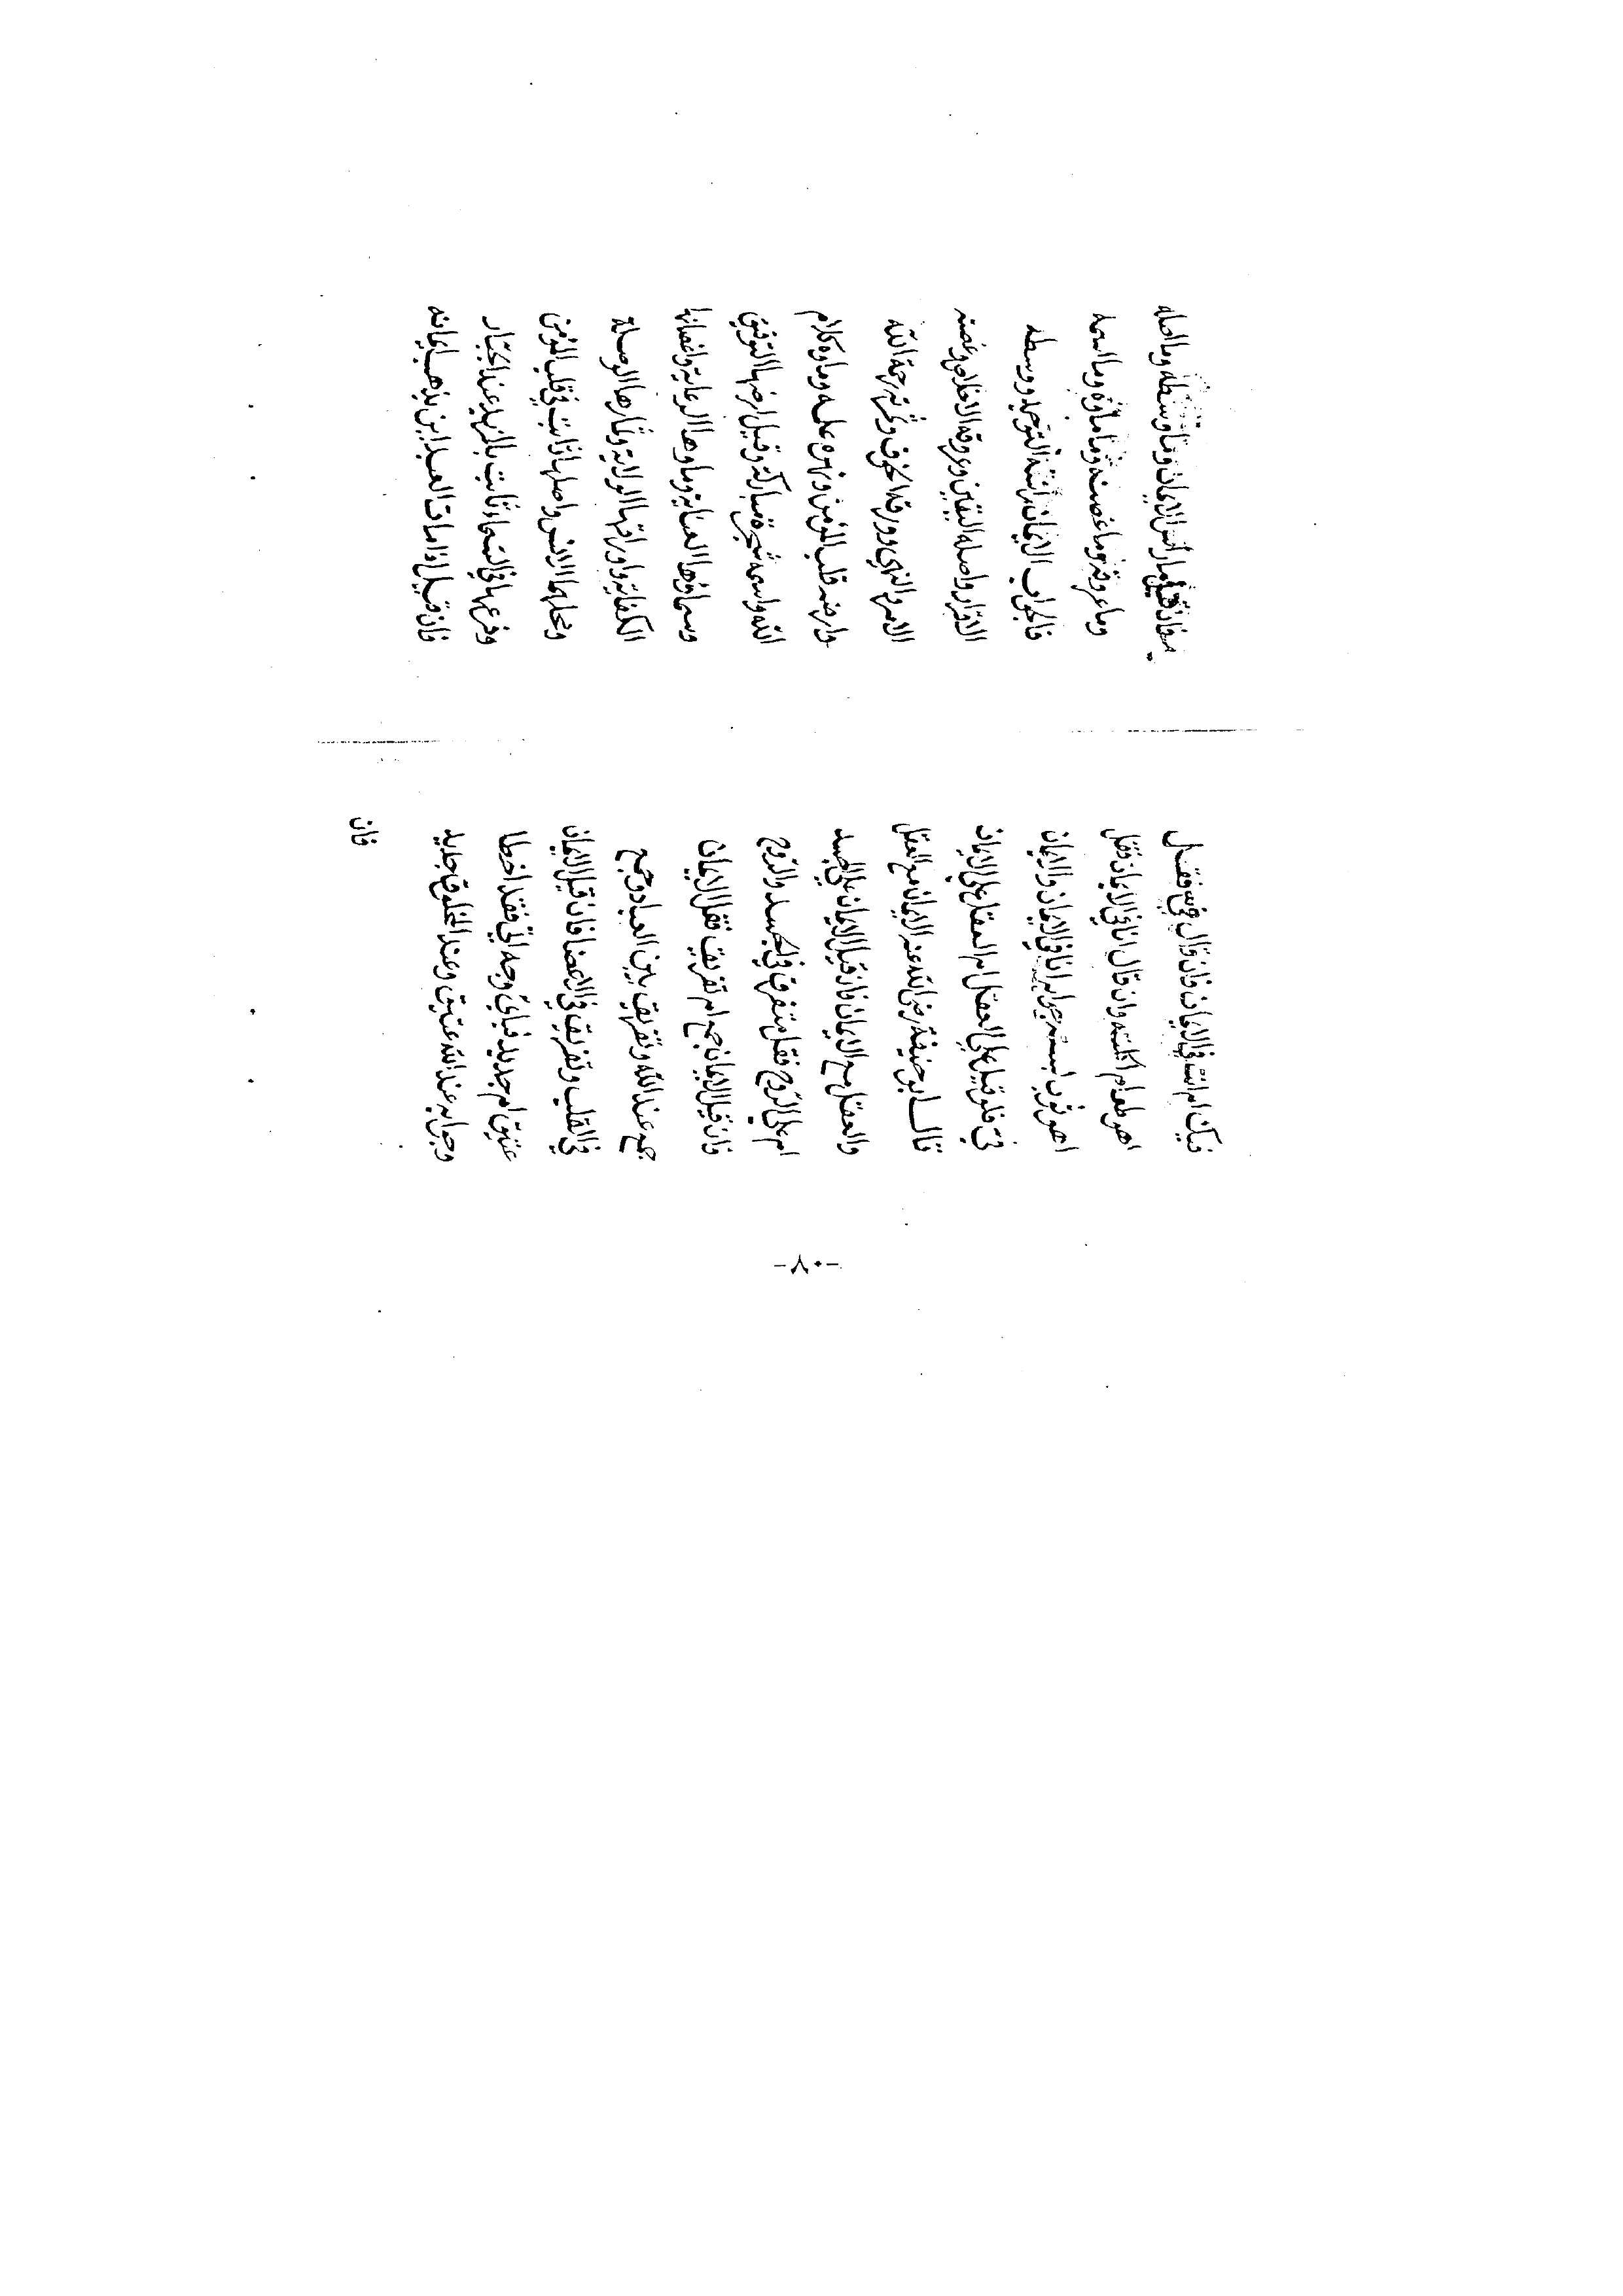 ام انت في الايمان فان قال في فقل
اهو طعام اكلته وان قال انا في الايمان فقل
اهو ثوب لبسته جوابه انا في الايمان والايمان
في فلو قيل على العقل ام العقل على الايمان
قال ابو حنيفة رضى الله عنه الايمان مع العقل
والعقل مع الايمان فان قيل الايمان على الجسد
ام على الروح فقل متفرق في الجسد والروح
فان قيل الايمان جمع ام تفريق فقل الايمان
جمع عند الله وتفريق بين العباد وجمع
في القلب وتفريق في الاعضا فان قيل الايمان
عتيق ام جديد فباي وجه اتى فقد اخطا
وجوابه عند الله عتيق وعند المخلوق جديد
فان
فان قيل ما رأس الايمان وما وسطه وما اصله
وما عروقه وما غصنه وما ماؤه وما اسمه
فالجواب الايمان رأسه التوحيد ووسطه
الاقرار واصله اليقين وعروقه الاخلاص وغصنه
الامر والنهي وورقه الخوف وثمرته رحمة الله
وارضه قلب المؤمن ونهره علمه وماؤه كلام
الله واسمه شجرة مباركة وقيل ارضها التوفيق
وسماؤها العناية وماوها الرعاية واغصانها
الكفاية واوراقها الولاية وثمارها الوصلة
ومحلها الانس واصلها ثابت في قلب المؤمن
وفرعها في السماء ثابت بالمزيد عند الجبار
فان قيل اذا مات العبد اين يذهب ايمانه
-٨٠-